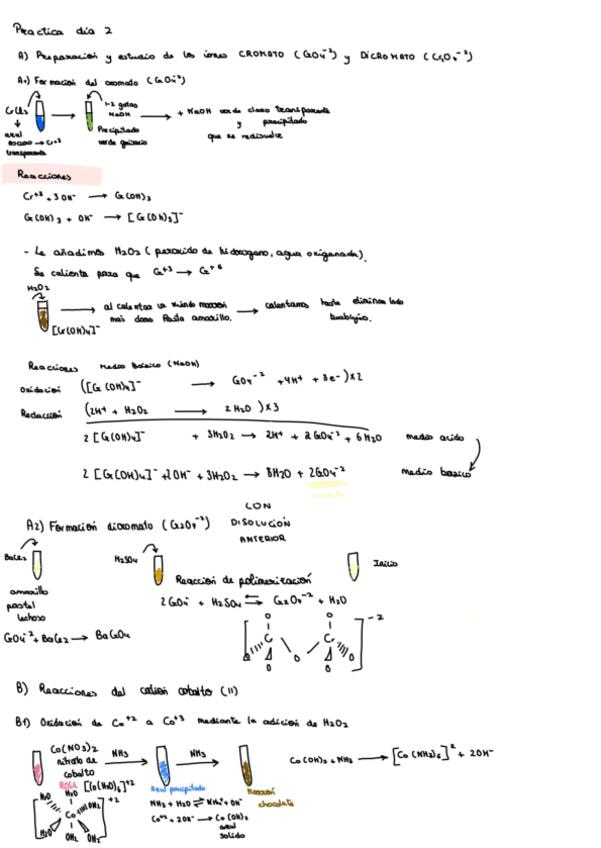 Practica día 2
A) Preparación y estudio de los iones CROMATO (CrO4⁻²) y DICROMATO (Cr2O7⁻²)
A1) Formación del cromato (CrO4⁻²)
CrCl3 → 1-2 gotas NaOH → + NaOH verde claro transparente
azul oscuro → Cr+3 transparente
Precipitado verde grisáceo
y precipitado que se redisuelve
Reacciones
Cr+3 + 3OH⁻ → Cr(OH)3
Cr(OH)3 + OH⁻ → [Cr(OH)3]⁻
- Le añadimos H2O2 (peroxido de hidrogeno, agua oxigenada).
Se calienta para que Cr+3 → Cr+6
H2O2
[Cr(OH)4]⁻
→ al calentar va siendo marron mas claro hasta amarillo. → calentamos hasta eliminar todo burbujeo.
Reacciones medio básico (NaOH)
Oxidación ([Cr(OH)4]⁻ → CrO4⁻² + 4H+ + 3e-) x2
Reducción (2H+ + H2O2 → 2H2O) x3
2[Cr(OH)4]⁻ + 3H2O2 → 2H+ + 2CrO4⁻² + 6H2O medio acido
2[Cr(OH)4]⁻ + 2OH⁻ + 3H2O2 → 8H2O + 2CrO4⁻² medio basico
A2) Formacion dicromato (Cr2O7⁻²) CON DISOLUCIÓN ANTERIOR
BaCl2
H2SO4
Inicio
amarillo pastel lechoso
Reaccion de polimerización
2CrO4⁻ + H2SO4 ⇌ Cr2O7⁻² + H2O
CrO4⁻² + BaCl2 → BaCrO4
O O -2
Cr Cr
O O O
O O
B) Reacciones del cation cobalto (II)
B1) Oxidación de Co+2 a Co+3 mediante la adicion de H2O2
Co(NO3)2 nitrato de cobalto
NH3 → NH3 →
Co(OH)2 + NH3 → [Co(NH3)6]² + 2OH⁻
ROSA [Co(H2O)6]+2
azul precipitado
Marron chocolate
NH3 + H2O ⇌ NH4+ + OH⁻
Co+2 + 2OH⁻ → Co(OH)2
azul solido
H2O +2
H2O OH2
Co
H2O OH2
OH2